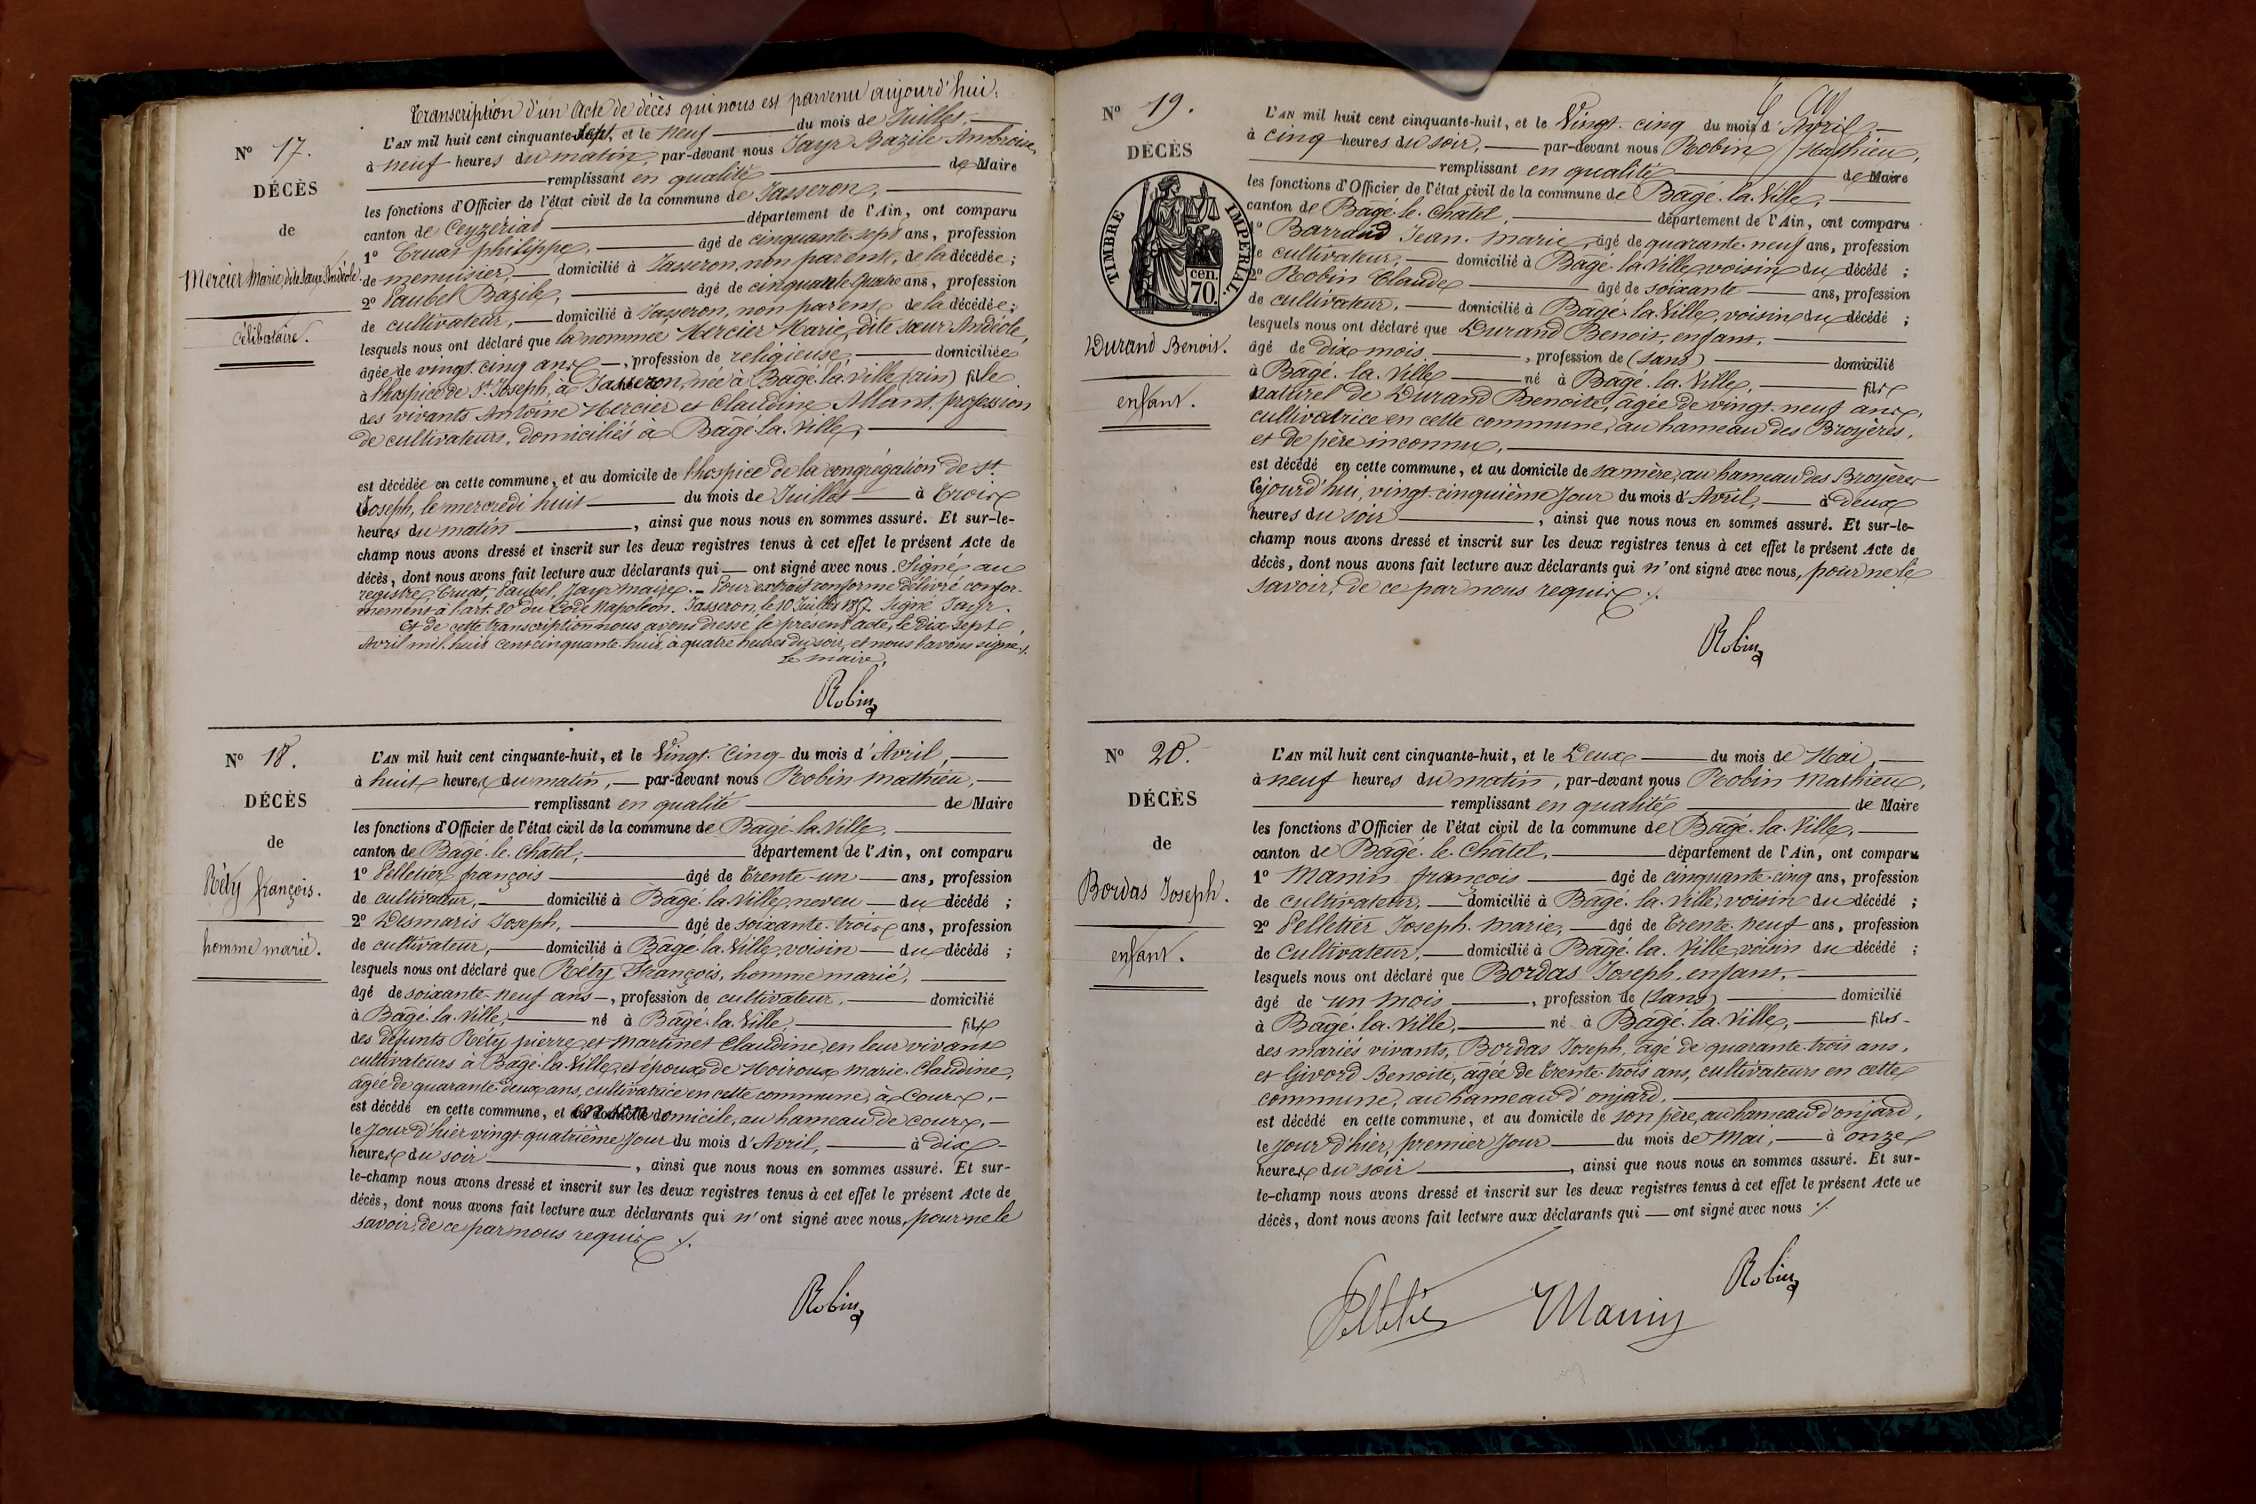 Transcription d'un Acte de décès qui nous est parvenu aujourd'hui.
N° 17.
DÉCÈS
de
Mercier Marie, dite sœur Andéole.
célibataire.
L'AN mil huit cent cinquante-sept, et le neuf du mois de Juillet,
à neuf heures du matin, par-devant nous Jayr Bazile Ambroise,
remplissant en qualité de Maire
les fonctions d'Officier de l'état civil de la commune de Jasseron,
canton de Ceyzériat département de l'Ain, ont comparu
1° Cruat philippe, âgé de cinquante-sept ans, profession
de menuisier, domicilié à Jasseron, non parent, de la décédée;
2° Paubel Bazile, âgé de cinquante-quatre ans, profession
de cultivateur, domicilié à Jasseron, non parent de la décédée;
lesquels nous ont déclaré que la nommée Mercier Marie, dite sœur Andéole,
âgée de vingt-cinq ans, profession de religieuse, domiciliée
à l'hospice de St. Joseph, à Jasseron, née à Bâgé-la-ville (ain) fille
des vivants Antoine Mercier et Claudine Allant, profession
de cultivateurs, domiciliés à Bâgé-la-Ville,
est décédée en cette commune, et au domicile de l'hospice de la congrégation de St.
Joseph, le mercredi huit du mois de Juillet à trois
heures du matin, ainsi que nous nous en sommes assuré. Et sur-le-
champ nous avons dressé et inscrit sur les deux registres tenus à cet effet le présent Acte de
décès, dont nous avons fait lecture aux déclarants qui — ont signé avec nous. Signé au
registre, Cruat, Paubel, Jayr maire. — Pour extrait conforme délivré confor-
mément à l'art. 80 du Code Napoléon. Jasseron, le 10 Juillet 1857. Signé Jayr.
Et de cette transcription nous avons dressé le présent acte, le dix-sept
Avril mil huit cent cinquante-huit, à quatre heures du soir, et nous l'avons signé ./.
Le maire,
Robin
N° 18.
DÉCÈS
de
Réty françois.
homme marié.
L'AN mil huit cent cinquante-huit, et le Vingt-cinq du mois d'Avril,
à huit heures du matin, par-devant nous Robin Mathieu,
remplissant en qualité de Maire
les fonctions d'Officier de l'état civil de la commune de Bâgé-la-Ville,
canton de Bâgé-le-Châtel, département de l'Ain, ont comparu
1° Pelletier françois âgé de trente-un ans, profession
de cultivateur, domicilié à Bâgé-la-Ville, neveu du décédé;
2° Desmaris Joseph, âgé de soixante-trois ans, profession
de cultivateur, domicilié à Bâgé-la-Ville, voisin du décédé;
lesquels nous ont déclaré que Réty François, homme marié,
âgé de soixante-neuf ans, profession de cultivateur, domicilié
à Bâgé-la-Ville, né à Bâgé-la-Ville, fils
des défunts Réty pierre et Martinet Claudine, en leur vivant
cultivateurs à Bâgé-la-Ville, et époux de Moiroux marie-Claudine,
âgée de quarante-deux ans, cultivatrice en cette commune, à Cours,
est décédé en cette commune, et en son domicile, au hameau de cours,
le jour d'hier vingt-quatrième jour du mois d'Avril, à dix
heures du soir, ainsi que nous nous en sommes assuré. Et sur-
le-champ nous avons dressé et inscrit sur les deux registres tenus à cet effet le présent Acte de
décès, dont nous avons fait lecture aux déclarants qui n'ont signé avec nous, pour ne le
savoir, de ce par nous requis ./.
Robin
N° 19.
DÉCÈS
TIMBRE IMPÉRIAL.
70. cen.
Durand Benoit.
enfant.
L'AN mil huit cent cinquante-huit, et le Vingt-cinq du mois d'Avril
à cinq heures du soir, par-devant nous Robin Mathieu,
remplissant en qualité de Maire
les fonctions d'Officier de l'état civil de la commune de Bâgé-la-Ville,
canton de Bâgé-le-Châtel, département de l'Ain, ont comparu
1° Barrand Jean-Marie, âgé de quarante-neuf ans, profession
de cultivateur, domicilié à Bâgé-la-Ville, voisin du décédé;
2° Robin Claude âgé de soixante ans, profession
de cultivateur, domicilié à Bâgé-la-Ville, voisin du décédé;
lesquels nous ont déclaré que Durand Benoit, enfant,
âgé de dix mois, profession de (sans) domicilié
à Bâgé-la-Ville né à Bâgé-la-Ville, fils
naturel de Durand Benoite, âgée de vingt-neuf ans,
cultivatrice en cette commune, au hameau des Broyères,
et de père inconnu,
est décédé en cette commune, et au domicile de sa mère, au hameau des Broyères
cejourd'hui, vingt-cinquième jour du mois d'Avril, à deux
heures du soir, ainsi que nous nous en sommes assuré. Et sur-le-
champ nous avons dressé et inscrit sur les deux registres tenus à cet effet le présent Acte de
décès, dont nous avons fait lecture aux déclarants qui n'ont signé avec nous, pour ne le
savoir, de ce par nous requis ./.
Robin
N° 20.
DÉCÈS
de
Bordas Joseph.
enfant.
L'AN mil huit cent cinquante-huit, et le Deux du mois de Mai,
à neuf heures du matin, par-devant nous Robin Mathieu,
remplissant en qualité de Maire
les fonctions d'Officier de l'état civil de la commune de Bâgé-la-Ville,
canton de Bâgé-le-Châtel, département de l'Ain, ont comparu
1° Manin françois âgé de cinquante-cinq ans, profession
de cultivateur, domicilié à Bâgé-la-Ville, voisin du décédé;
2° Pelletier Joseph-marie, âgé de trente-neuf ans, profession
de cultivateur, domicilié à Bâgé-la-Ville, voisin du décédé;
lesquels nous ont déclaré que Bordas Joseph, enfant,
âgé de un mois, profession de (sans) domicilié
à Bâgé-la-Ville, né à Bâgé-la-Ville, fils
des mariés vivants, Bordas Joseph, âgé de quarante-trois ans,
et Givord Benoite, âgée de trente-trois ans, cultivateurs en cette
commune, au hameau d'onjard,
est décédé en cette commune, et au domicile de son père, au hameau d'onjard,
le jour d'hier, premier jour du mois de Mai, à onze
heures du soir, ainsi que nous nous en sommes assuré. Et sur-
le-champ nous avons dressé et inscrit sur les deux registres tenus à cet effet le présent Acte de
décès, dont nous avons fait lecture aux déclarants qui — ont signé avec nous ./.
Pelletier Manin Robin